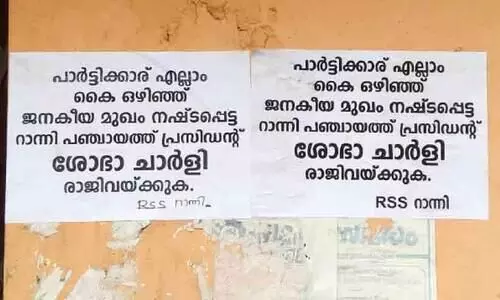 പാർട്ടിക്കാര് എല്ലാം
കൈ ഒഴിഞ്ഞ്
ജനകീയ മുഖം നഷ്ടപ്പെട്ട
റാന്നി പഞ്ചായത്ത് പ്രസിഡന്റ്
ശോഭാ ചാർളി
രാജിവയ്ക്കുക.
RSS റാന്നി
പാർട്ടിക്കാര് എല്ലാം
കൈ ഒഴിഞ്ഞ്
ജനകീയ മുഖം നഷ്ടപ്പെട്ട
റാന്നി പഞ്ചായത്ത് പ്രസിഡന്റ്
ശോഭാ ചാർളി
രാജിവയ്ക്കുക.
RSS റാന്നി